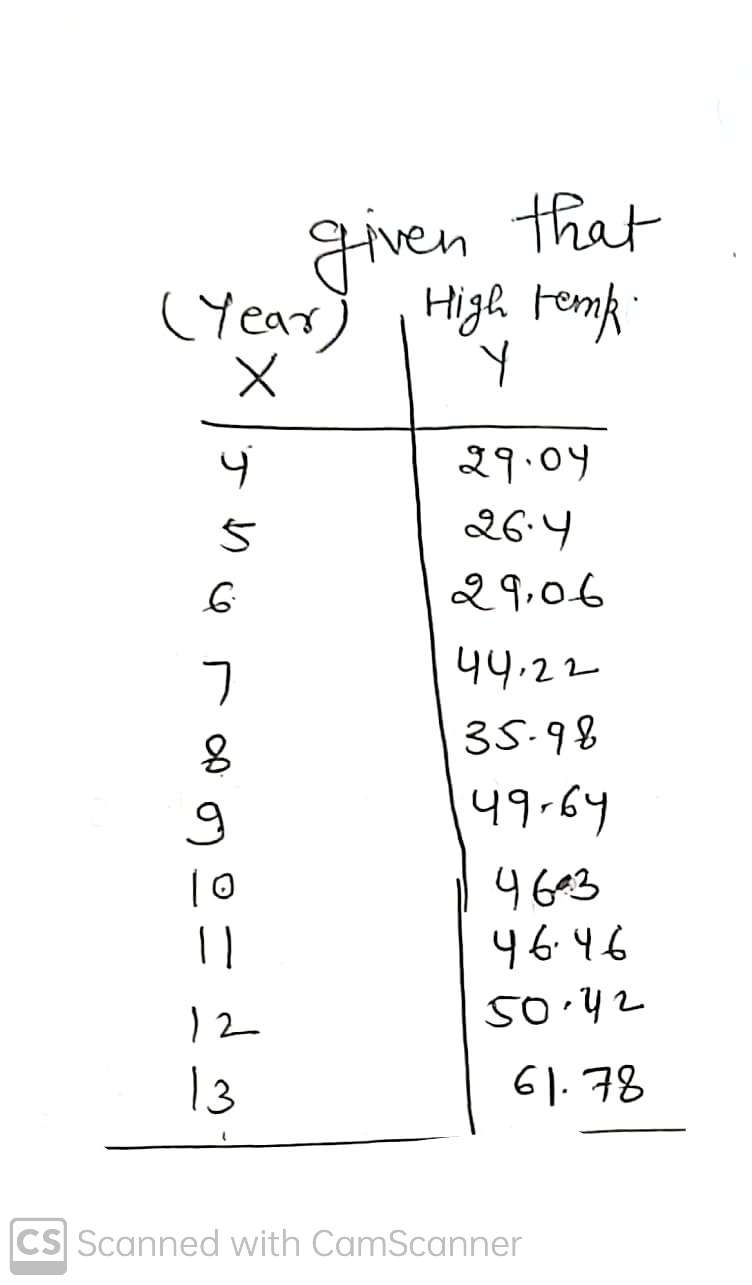 given that
(Year) High temp.
X Y
4 29.04
5 26.4
6 29.06
7 44.22
8 35.98
9 49.64
10 46.3
11 46.46
12 50.42
13 61.78
CS Scanned with CamScanner